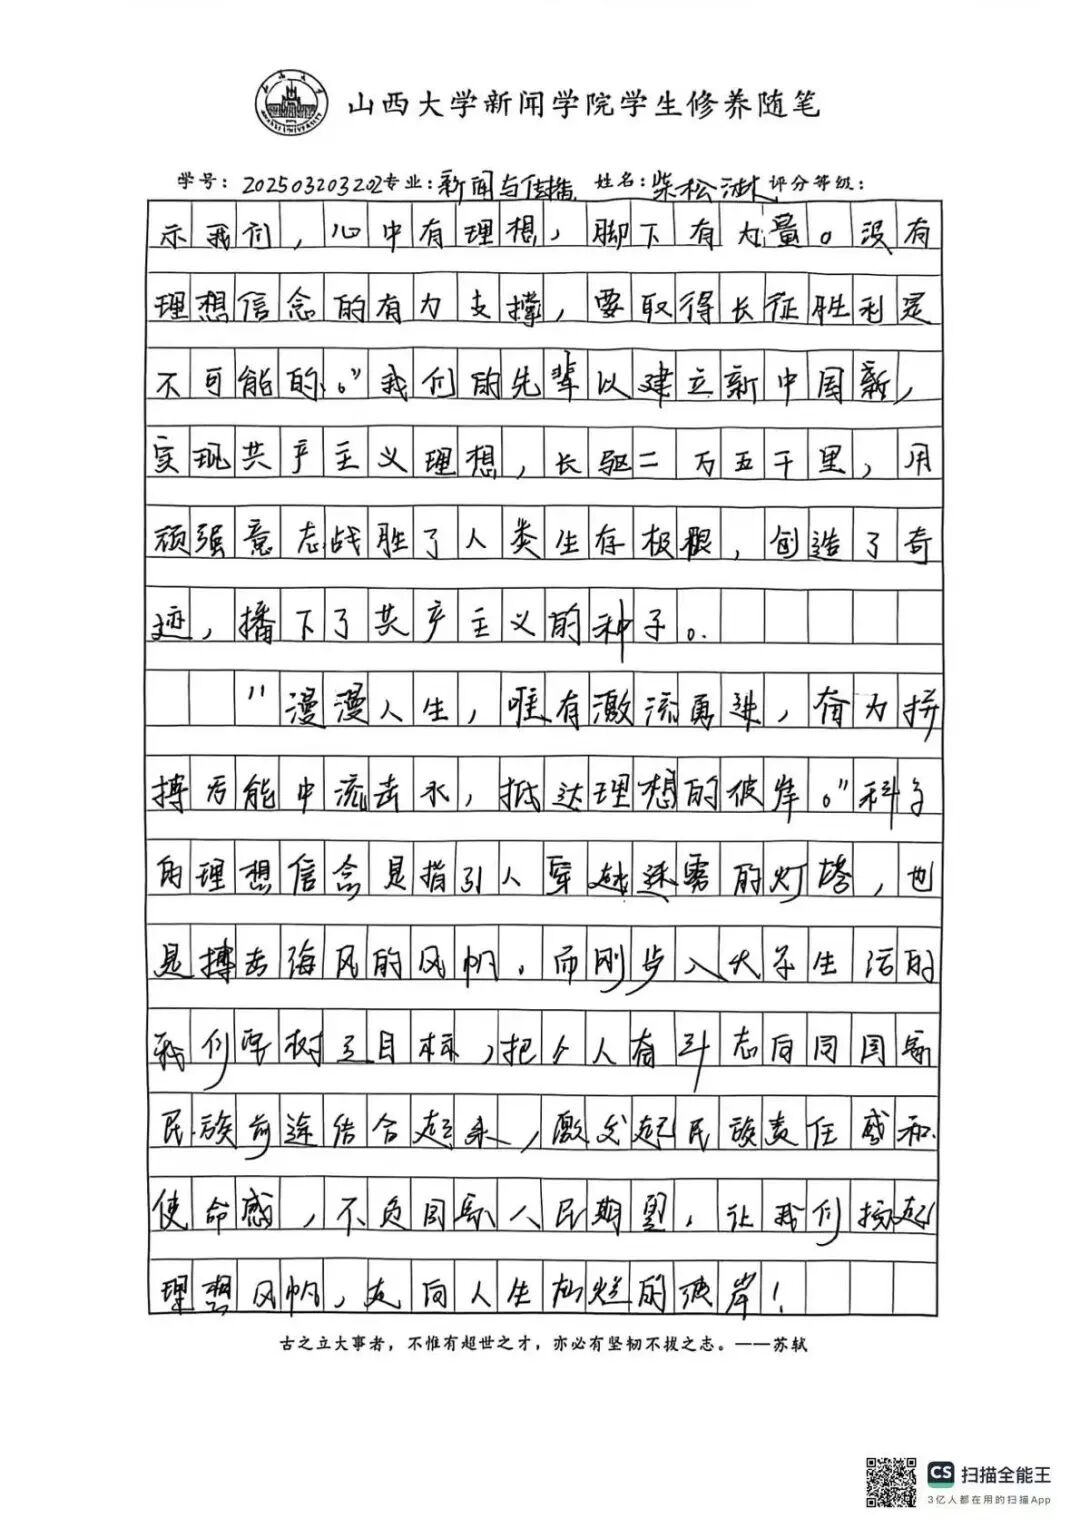 山西大学新闻学院学生修养随笔
学号：202503203202专业：新闻与传播 姓名：柴松 评分等级：
示我们，心中有理想，脚下有力量。没有
理想信念的有力支撑，要取得长征胜利是
不可能的。”我们的先辈以建立新中国新，
实现共产主义理想，长驱二万五千里，用
顽强意志战胜了人类生存极限，创造了奇
迹，播下了共产主义的种子。
“漫漫人生，唯有激流勇进，奋力拼
搏方能中流击水，抵达理想的彼岸。”科学
的理想信念是指引人穿越迷雾的灯塔，也
是搏击海风的风帆。而刚步入大学生活的
我们要树立目标，把个人奋斗志向同国家
民族前途结合起来，激发起民族责任感和
使命感，不负国家人民期望，让我们扬起
理想风帆，走向人生灿烂的彼岸！
古之立大事者，不惟有超世之才，亦必有坚韧不拔之志。——苏轼
CS 扫描全能王
3亿人都在用的扫描App